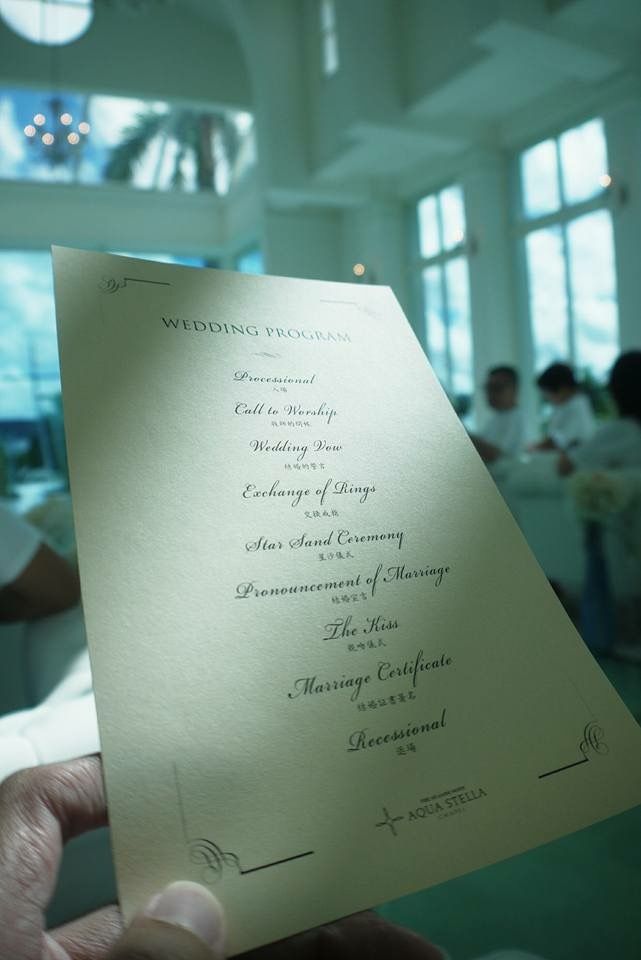 WEDDING PROGRAM
Processional
入場
Call to Worship
牧師的問候
Wedding Vow
結婚的誓言
Exchange of Rings
交換戒指
Star Sand Ceremony
星沙儀式
Pronouncement of Marriage
結婚宣言
The Kiss
親吻儀式
Marriage Certificate
結婚証書署名
Recessional
退場
AQUA STELLA
CHAPEL